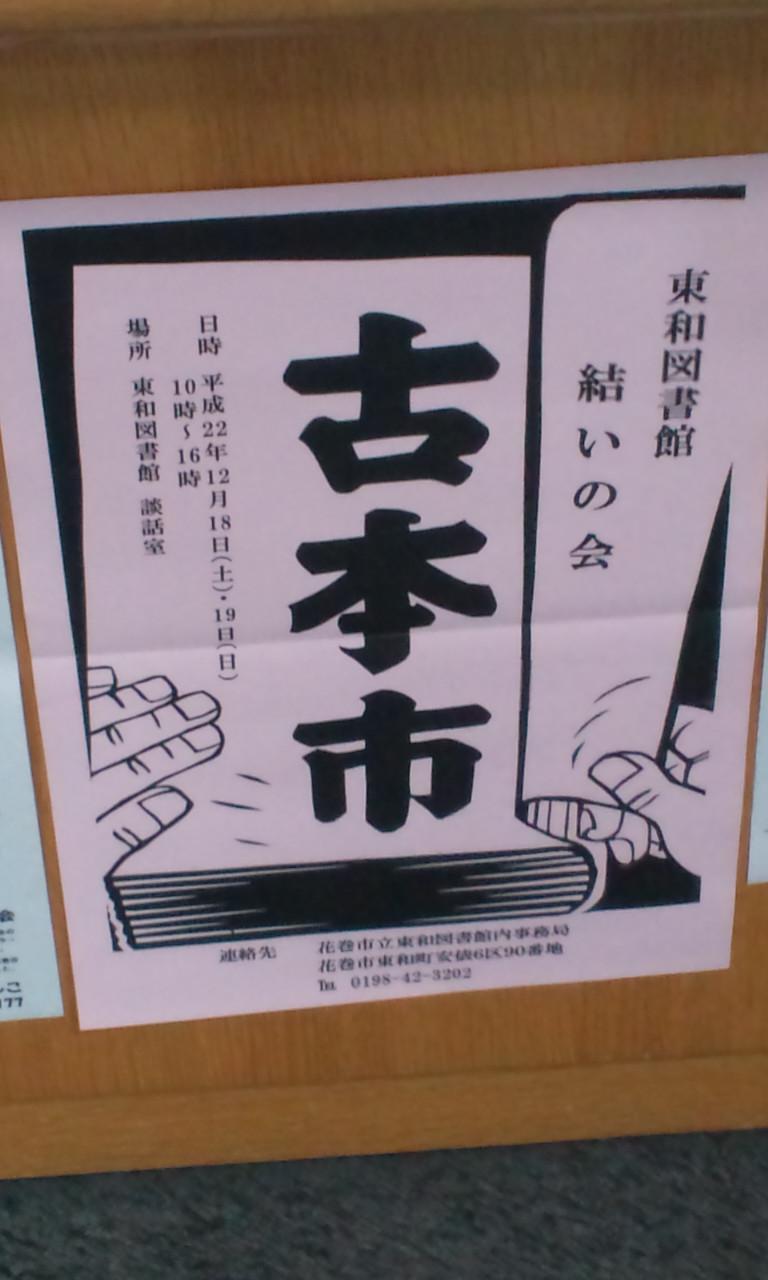 東和図書館
結いの会
古本市
日時 平成22年12月18日(土)・19日(日)
10時~16時
場所 東和図書館 談話室
連絡先 花巻市立東和図書館内事務局
花巻市東和町安俵6区90番地
℡ 0198-42-3202
会
177